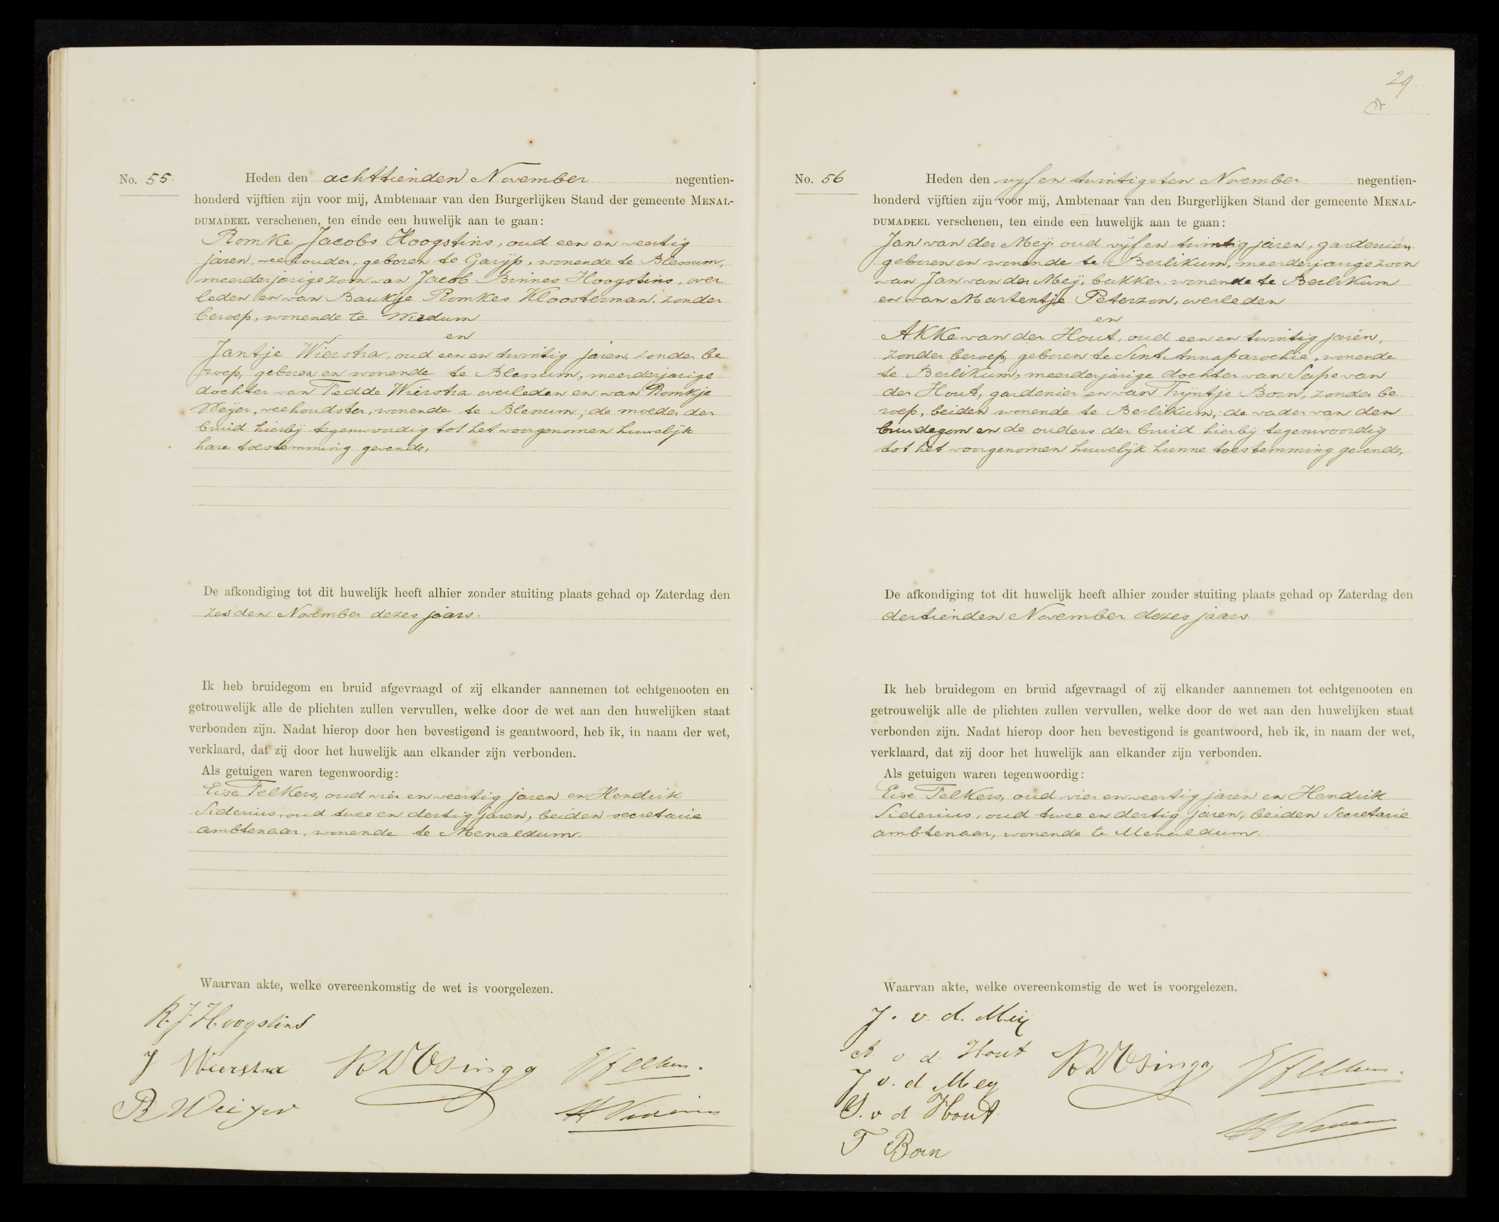 No. 55
Heden den achttienden November negentien-
honderd vijftien zijn voor mij, Ambtenaar van den Burgerlijken Stand der gemeente MENAL-
DUMADEEL verschenen, ten einde een huwelijk aan te gaan:
Romke Jacobs Hoogstins, oud een en veertig
jaren, veehouder, geboren te Garijp, wonende te Blessum,
meerderjarige zoon van Jacob Binnes Hoogstins, over
leden en van Baukje Romkes Kloosterman, zonder
beroep, wonende te Wirdum
en
Jantje Wierstra, oud een en twintig jaren, zonder be
roep, geboren en wonende te Blessum, meerderjarige
dochter van Tedde Wierstra overleden en van Romkje
Weijer, veehoudster, wonende te Blessum; de moeder der
bruid hierbij tegenwoordig tot het voorgenomen huwelijk
hare toestemming gevende.
De afkondiging tot dit huwelijk heeft alhier zonder stuiting plaats gehad op Zaterdag den
zesden November dezes jaars.
Ik heb bruidegom en bruid afgevraagd of zij elkander aannemen tot echtgenooten en
getrouwelijk alle de plichten zullen vervullen, welke door de wet aan den huwelijken staat
verbonden zijn. Nadat hierop door hen bevestigend is geantwoord, heb ik, in naam der wet,
verklaard, dat zij door het huwelijk aan elkander zijn verbonden.
Als getuigen waren tegenwoordig:
Eise Telkers, oud vier en veertig jaren en Hendrik
Siderius, oud twee en dertig jaren, beiden secretarie
ambtenaar, wonende te Menaldum.
Waarvan akte, welke overeenkomstig de wet is voorgelezen.
R. J. Hoogstins
J Wierstra
R Weijer
29
No. 56
Heden den vijf en twintigsten November negentien-
honderd vijftien zijn voor mij, Ambtenaar van den Burgerlijken Stand der gemeente MENAL-
DUMADEEL verschenen, ten einde een huwelijk aan te gaan:
Jan van der Meij oud vijf en twintig jaren, gardenier,
geboren en wonende te Berlikum, meerderjarige zoon
van Jan van der Meij, bakker, wonende te Berlikum
en van Martentje Peterzon, overleden
en
Akke van der Hout, oud een en twintig jaren,
zonder beroep, geboren te Sint Annaparochie, wonende
te Berlikum, meerderjarige dochter van Sape van
der Hout, gardenier en van Trijntje Born, zonder be
roep, beiden wonende te Berlikum; de vader van den
bruidegom en de ouders der bruid hierbij tegenwoordig
tot het voorgenomen huwelijk hunne toestemming gevende.
De afkondiging tot dit huwelijk heeft alhier zonder stuiting plaats gehad op Zaterdag den
dertienden November dezes jaars
Ik heb bruidegom en bruid afgevraagd of zij elkander aannemen tot echtgenooten en
getrouwelijk alle de plichten zullen vervullen, welke door de wet aan den huwelijken staat
verbonden zijn. Nadat hierop door hen bevestigend is geantwoord, heb ik, in naam der wet,
verklaard, dat zij door het huwelijk aan elkander zijn verbonden.
Als getuigen waren tegenwoordig:
Eise Telkers, oud vier en veertig jaren en Hendrik
Siderius, oud twee en dertig jaren, beiden Secretarie
ambtenaar, wonende te Menaldum.
Waarvan akte, welke overeenkomstig de wet is voorgelezen.
J. v. d. Meij
A v d Hout
J v. d Meij
S. v d Hout
T Born